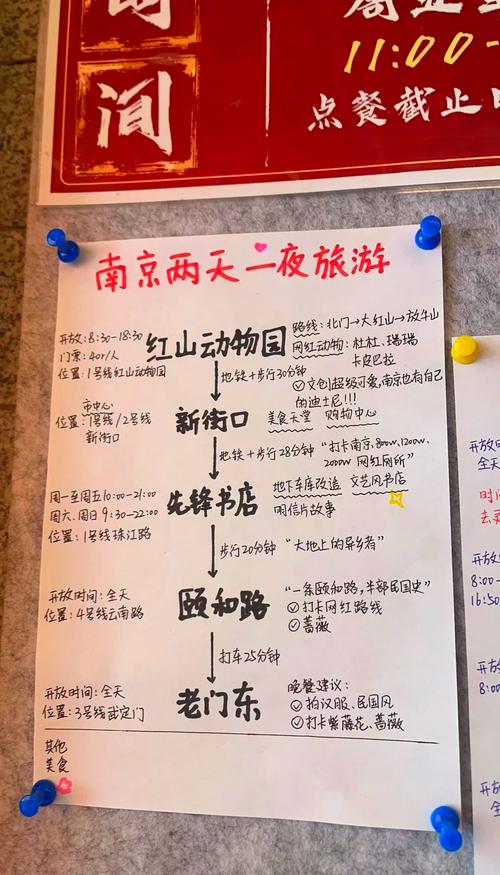 间
11:00-
点餐截止
南京两天一夜旅游
开放:8:30-18:30
门票:40r/人
位置:1号线红山动物园
红山动物园
路线:北门→大红山→放牛山
网红动物:杜杜、瑞瑞
卡皮巴拉
地铁+步行30分钟
文创超级可爱,南京也有自己
的迪士尼!!!
市中心
位置:1号线/2号线
新街口
新街口
美食天堂 购物中心
地铁+步行28分钟
"打卡南京,800w,1200w,
2000w 网红厕所"
周一至周五10:00-21:00
周六、周日9:30-22:00
位置:1号线珠江路
先锋书店
地下车库改造 文艺风书店
明信片故事
步行20分钟 "大地上的异乡者"
开放时间:全天
位置:4号线云南路
颐和路
"一条颐和路,半部民国史"
打卡网红路线
蔷薇
打车25分钟
开放时间:全天
位置:3号线武定门
老门东
晚餐建议:
拍汉服、民国风
打卡紫藤花、蔷薇
其他
美食
开放时
全天
开放
8:00-
16:50
开放
8:00
开放
全